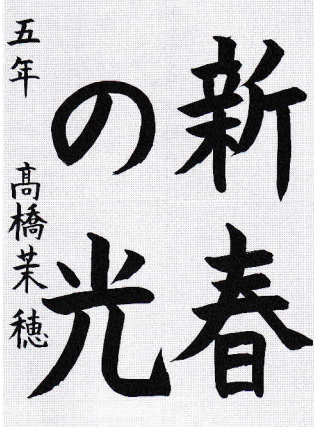 新春
の光
五年 髙橋茉穂